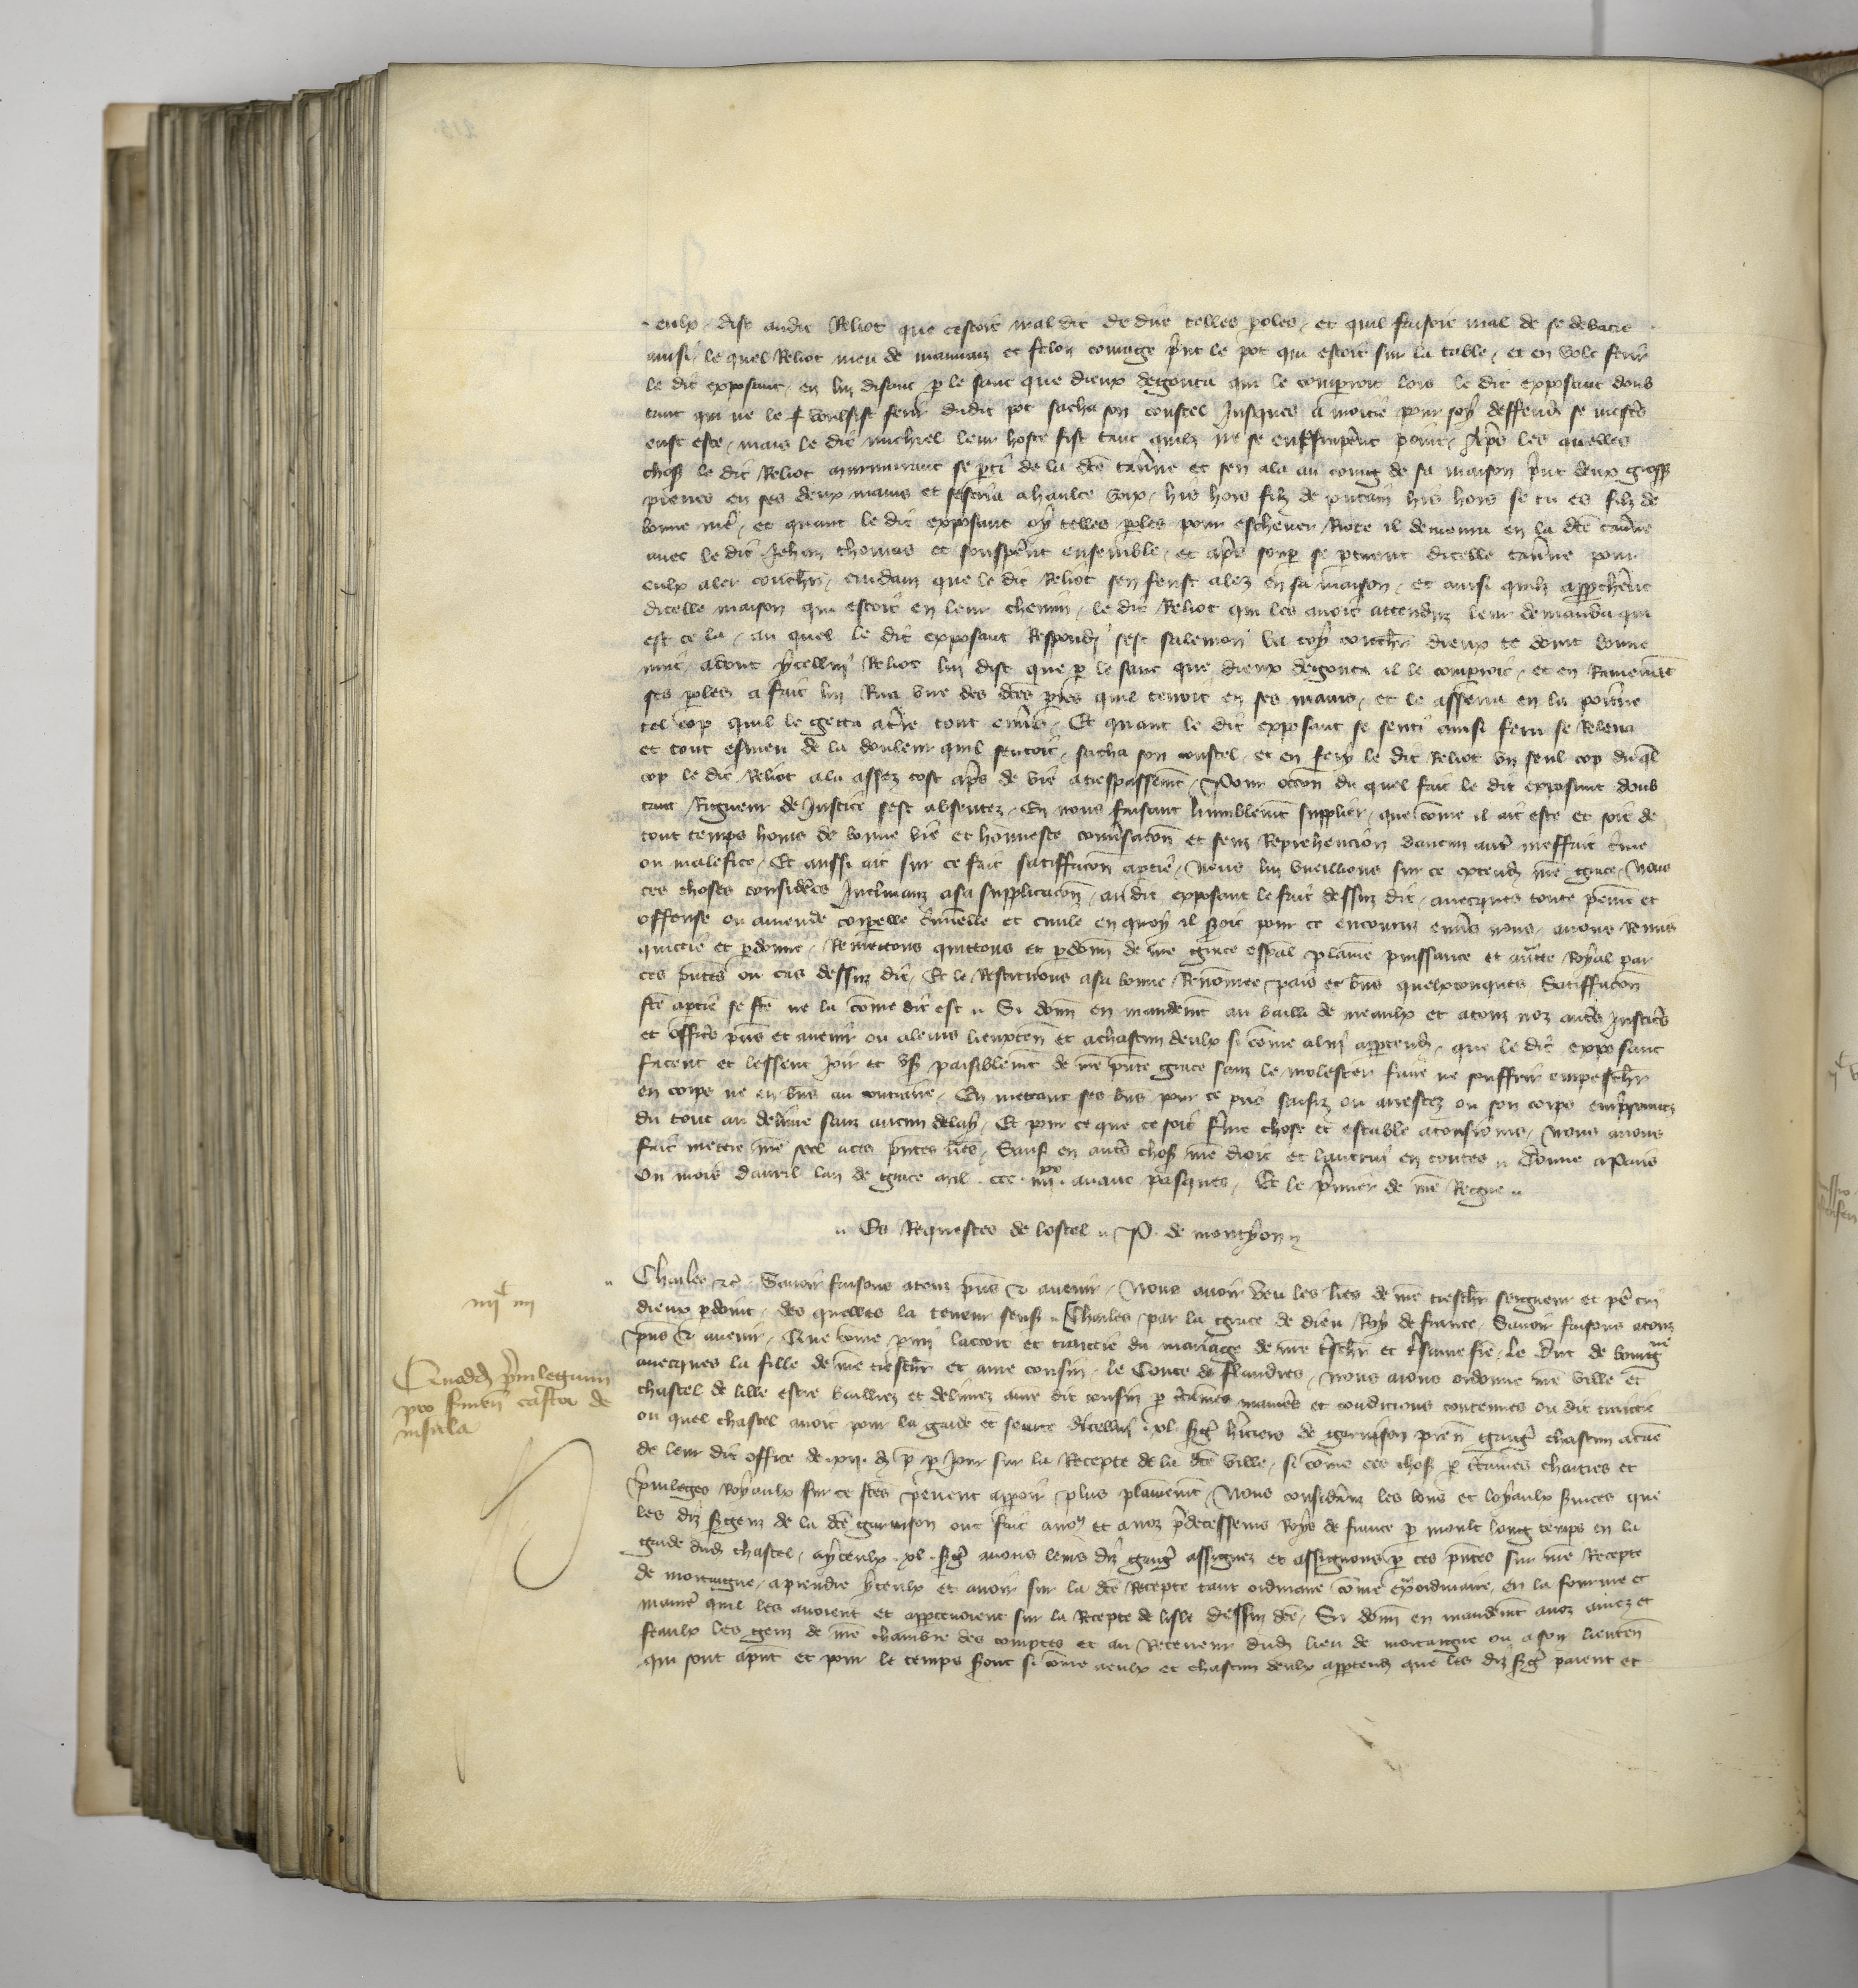 eulx dist audit Reliot que cestoit mal dit de dire telles poles et quil faisoit mal de se debatre
ainsi le quel Reliot meu de mauvaiz et felon courage print le pot qui estoit sur la table et en volt ferir
le dit exposant en lui disant p le sanc que dieux degouta qui le comproit lors le dit exposant doub
tant qui ne le voulsist ferir dudit pot sacha son coustel Jusques a moitie pour soy deffendre se mest
eust este mais le dit michiel leur hoste fist tant quilz ne se point Apres les quelles
choses le dit Reliot murmurant se parti de la dce tavne et sen ala au coing de sa maison print deux grosses
pierres en ses deux mains et sescria a haulte voix his hors filz de putain his hors se tu es filz de
bonne mere et quant le dit exposant oy telles poles pour eschever Riote il demoura en la dce tavne
avec le dit Jehan thomas et souperent ensemble et apres soup se ptirent dicelle tavne pour
eulx aler couchier cuidanz que le dit Reliot sen feust alez en sa maison et ainsi quilz approcherent
dicelle maison qui estoit en leur chemin le dit Reliot qui les avoit attenduz leur demanda qui
est ce la au quel le dit exposant Respondi sest salemon va toy couchier dieux te doint bonne
nuit adont ycellui Reliot lui dist que p le sanc que dieux degouta il le comproit et en
ses poles a fait lui Rua une des dces pierres quil tenoit en ses mains et le assena en la poitrine
tel cop quil le getta a tre tout envers Et quant le dit exposant se senti ainsi feru se Releva
et tout esmeu de la douleur quil sentoit sacha son coustel et en fery le dit Reliot un seul cop du ql
cop le dit Reliot ala assez tost apres de vie a trespassemt Pour occon du quel fait le dit exposant doub
tant Rigueur de Justice sest absentez En nous faisant humblemt supplier que come il ait este et soit de
tout temps homs de bonne vie et honneste convsacon et senz Reprehencion daucun autre meffait crime
ou malefice Et aussi ait sur ce fait satiffacon a ptie nous lui vueillions sur ce extendre nre grace Nous
ces choses considerees Inclinanz a sa supplicacon au dit exposant le fait dessus dit avecques toute peine et
offense ou amende corporelle criminelle et civile en quoy il soit pour ce encouruz envs nous avons Remis
quictie et pdonne Remettons quittons et pdonn de nre grace espal plaine puissance et auctte Royal par
ces pntes ou cas dessus dit Et le Restituons a sa bonne Renomee pais et biens quelxconques Satiffacon
fte a ptie se fte ne la come dit est Si donn en mandemt au bailli de meaulx et a touz noz autres Justiciers
et officiers pns et avenir ou a leurs lieuxten et a chascun deulx si come a lui apptendra que le dit exposant
facent et lessent joir et user paisiblemt de nre pnte grace sanz le molester faire ne souffrir empeschier
en corps ne en biens au contraire En mettant ses biens pour ce pris saisiz ou arrestez ou son corps emprisonnez
du tout au delivre sanz aucun delay Et pour ce que ce soit ferme chose et estable a tousjours Nous avons
fait mettre nre seel a ces pntes lres Sauf en autres choses nre droit et lautrui en toutes Donne a Paris
Ou mois davril lan de grace mil ccc iiiixx avant pasques Et le premier de nre Regne
Es Requestes de lostel P. de montyon
iiijc iiij
Charles etc Savoir faisons a touz pns et avenir Nous avoir veu les lres de nre treschr seigneur et pere cui
dieux pdoint des quelles la teneur sensuit Charles par la grace de dieu Roy de france Savoir faisons a touz
pns et avenir Que come par laccort et traictie du mariage de nre treschr et tresame frere le duc de bourgne
Quoddam privilegium
pro servien castri de
insula
avecques la fille de nre treschr et ame cousin le Conte de flandres nous aions ordonne nre ville et
chastel de lille estre bailliez et delivrez a nre dit cousin p ctaines manieres et condicions contenues ou dit traictie
ou quel chastel avoit pour la garde et seurte dicellui xl sergens de garnison pren gaiges chascun a cause
de leur dit office de xij d p p Jour sur la Recepte de la dce ville si come ces choses p ctaines chartres et
privileges Royaulx sur ce ftes peuent apparoir plus plainemt Nous considerans les bons et loyaulx services que
les diz sergens de la dce garnison ont fait a nous et a noz predecesseurs Roys de france p moult long temps en la
garde dudit chastel a yceulx xl sergens avons leurs diz gaiges assignez et assignons p ces pntes sur nre Recepte
de mortaigne a prendre yceulx et avoir sur la dce Recepte tant ordinaire come extraordinaire en la fourme et
maniere quil les avoient et appcevoient sur la Recepte de lisle dessus dce Si donn en mandemt a noz amez et
feaulx les gens de nre chambre des comptes et au Receveur dudit lieu de mortaigne ou a son lieuten
qui sont a pnt et pour le temps seront si come a eulx et chascun deulx apptendra que les diz sergens paient et